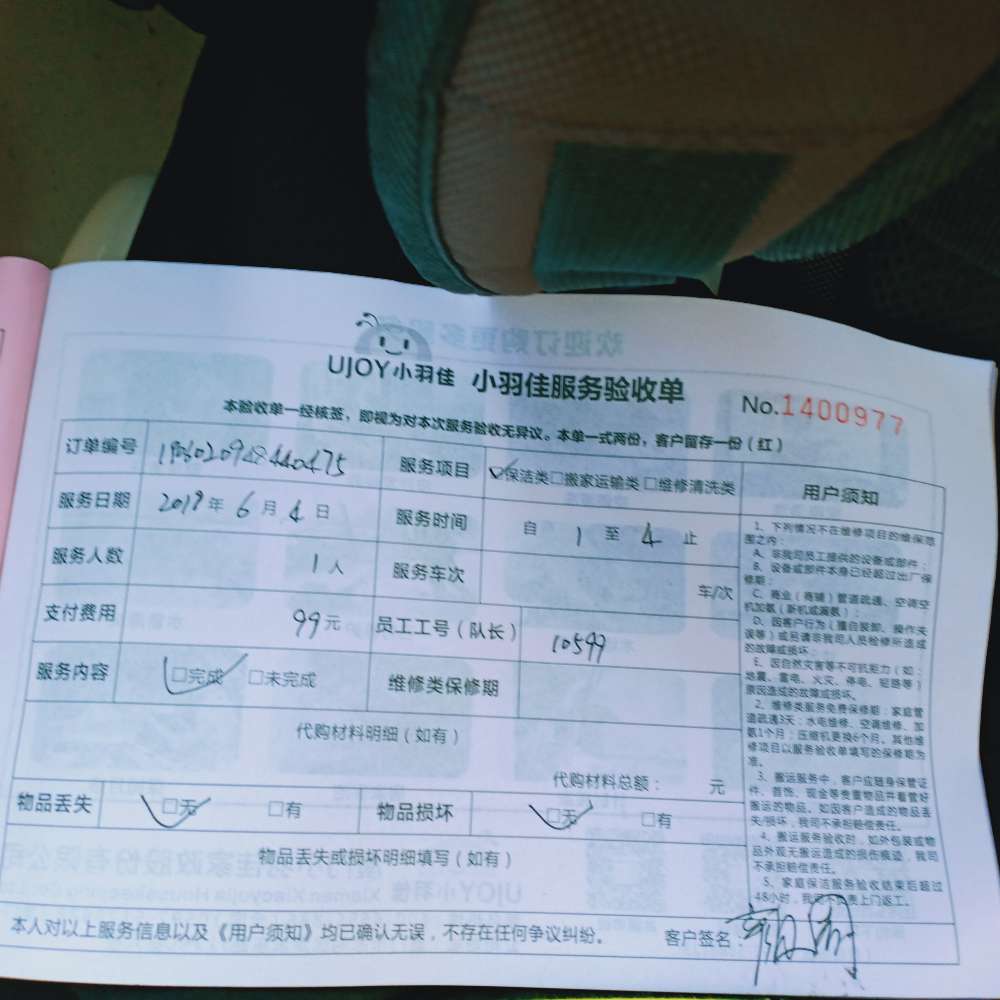 UJOY小羽佳 小羽佳服务验收单 No.1400977
本验收单一经核签，即视为对本次服务验收无异议。本单一式两份，客户留存一份（红）
订单编号 服务项目 保洁类□搬家运输类□维修清洗类 用户须知
服务日期 2018年6月4日 服务时间 自 1 至 4 止
服务人数 1人 服务车次 车/次
支付费用 99元 员工工号（队长） 10599
服务内容 □完成 □未完成 维修类保修期
代购材料明细（如有）
代购材料总额： 元
物品丢失 □无 □有 物品损坏 □无 □有
物品丢失或损坏明细填写（如有）
1、下列情况不在维修项目的维保范
围之内：
A、非我司员工提供的设备或部件；
B、设备或部件本身已经超过出厂保
修期；
C、商业（商铺）管道疏通、空调空
机加氨（新机或漏氨）；
D、因客户行为（擅自装卸、操作失
误等）或另请非我司人员检修所造成
的故障或损坏；
E、因自然灾害等不可抗拒力（如：
地震、雷电、火灾、停电、短路等）
原因造成的故障或损坏。
2、维修类服务免费保修期：家庭管
道疏通3天；水电维修、空调维修、加
氨1个月；压缩机更换6个月。其他维
修项目以服务验收单填写的保修期为
准。
3、搬运服务中，客户应随身保管证
件、首饰、现金等贵重物品并看管好
搬运的物品。如因客户造成的物品丢
失/损坏，我司不承担赔偿责任。
4、搬运服务验收时，如外包装或物
品外观无搬运造成的损伤痕迹，我司
不承担赔偿责任。
5、家庭保洁服务验收结束后超过
48小时，我司不负责上门返工。
本人对以上服务信息以及《用户须知》均已确认无误，不存在任何争议纠纷。 客户签名：